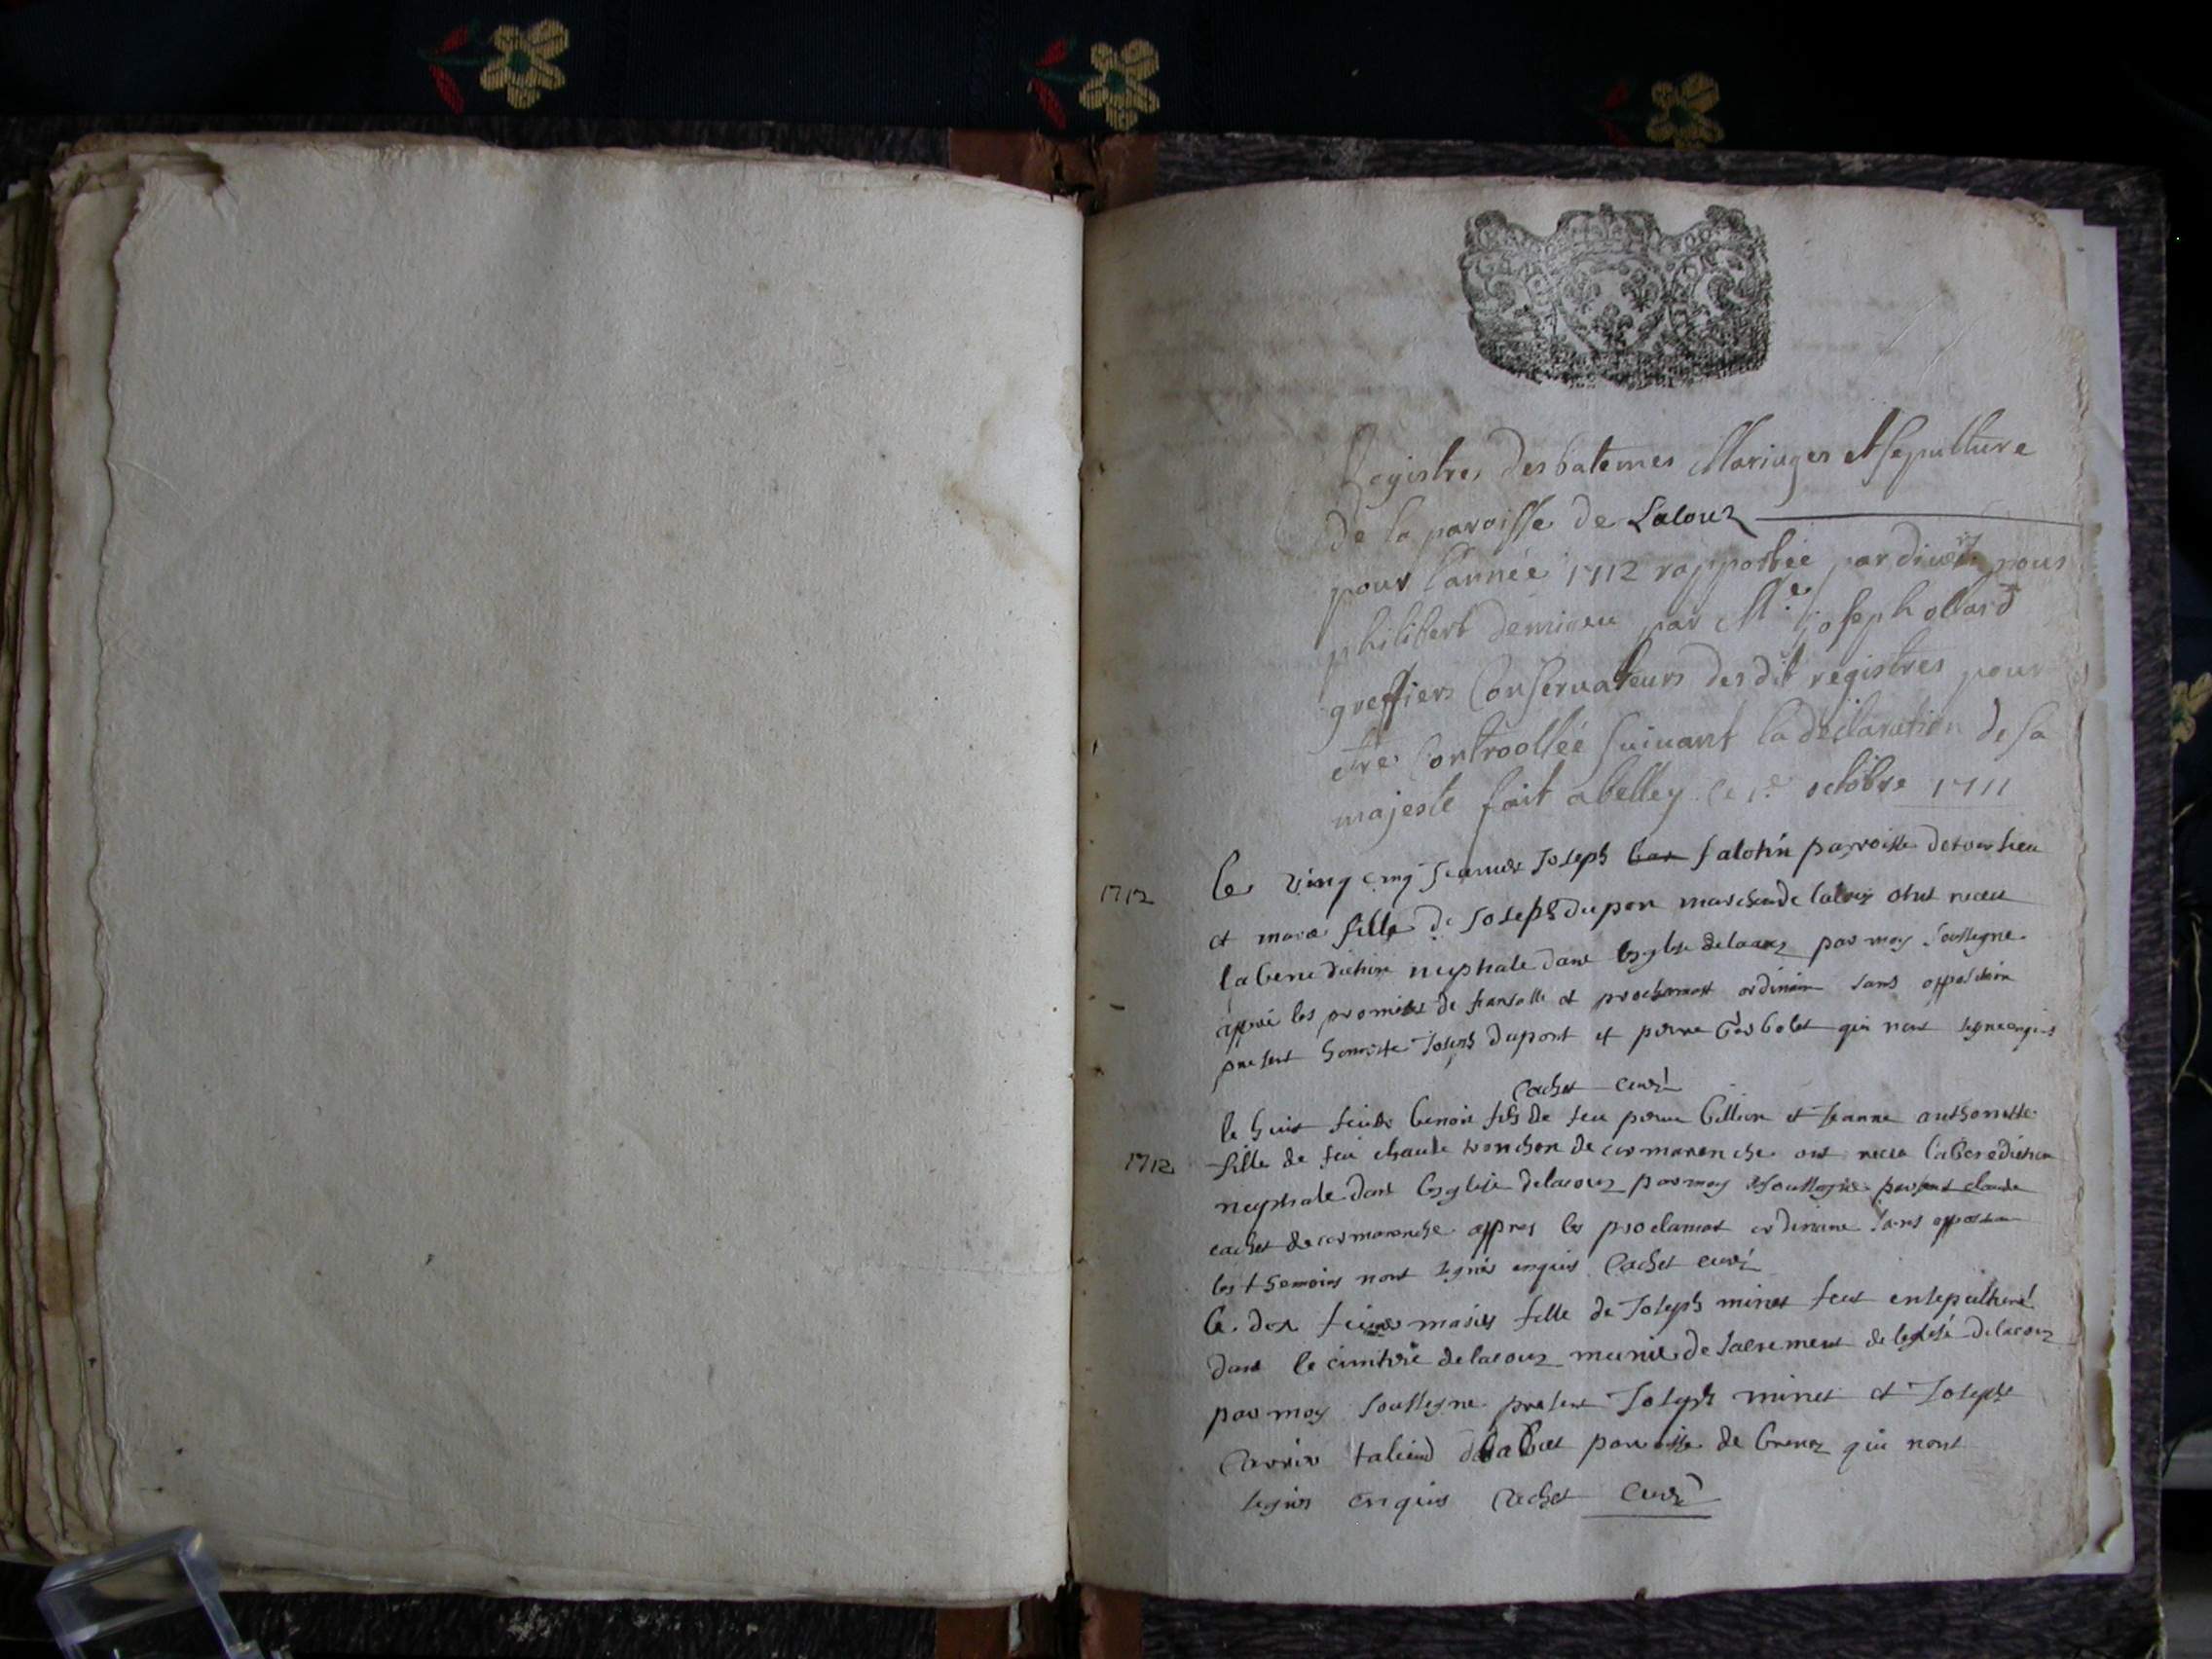 Registres des batemes Mariages et sepulture
de la paroisse de Lalouz
pour l'année 1712 rapportée par nous
philibert demigeu par Me joseph ollard
greffiers Conservateurs desdit registres pour
etre Controollée suivant la declaration de sa
majeste fait abelley le 1e octobre 1711
1712
le ving cinq Janvier Joseph falotin parroisse de
et marie fille de Joseph dupon marchand de ont receu
la benediction nuptiale dans leglise par moy soussigne
apprè les promesses de et proclamat ordinaire sans opposition
present honneste Joseph dupont et pierre qui nont signé enquis
Cachet curé
le huit benoit fils de feu pierre billion et Jeanne anthonette
1712
fille de feu claude de cormaranche ont receu la benediction
nuptiale dans leglise delacouz par moy soussigné present claude
cachet de cormaranche appres les proclamat ordinaire sans opposition
les themoins nont signés enquis Cachet curé
le dix fille de Joseph minet feut ensepulturé
dans le cimitire delacouz munie de sacrement de leglise delacouz
par moy soussigne present Joseph minet et Joseph
parroisse de qui nont
signés enquis Cachet curé